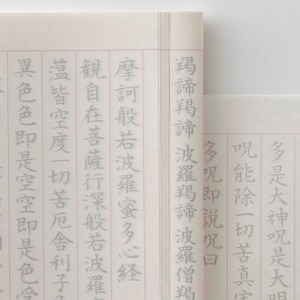 多是大神呪是大明
呪能除一切苦真実
多呪即説呪曰
羯諦羯諦 波羅羯諦 波羅僧羯
摩訶般若波羅蜜多心経
観自在菩薩行深般若波羅
蘊皆空度一切苦厄舎利子
異色色即是空空即是色受